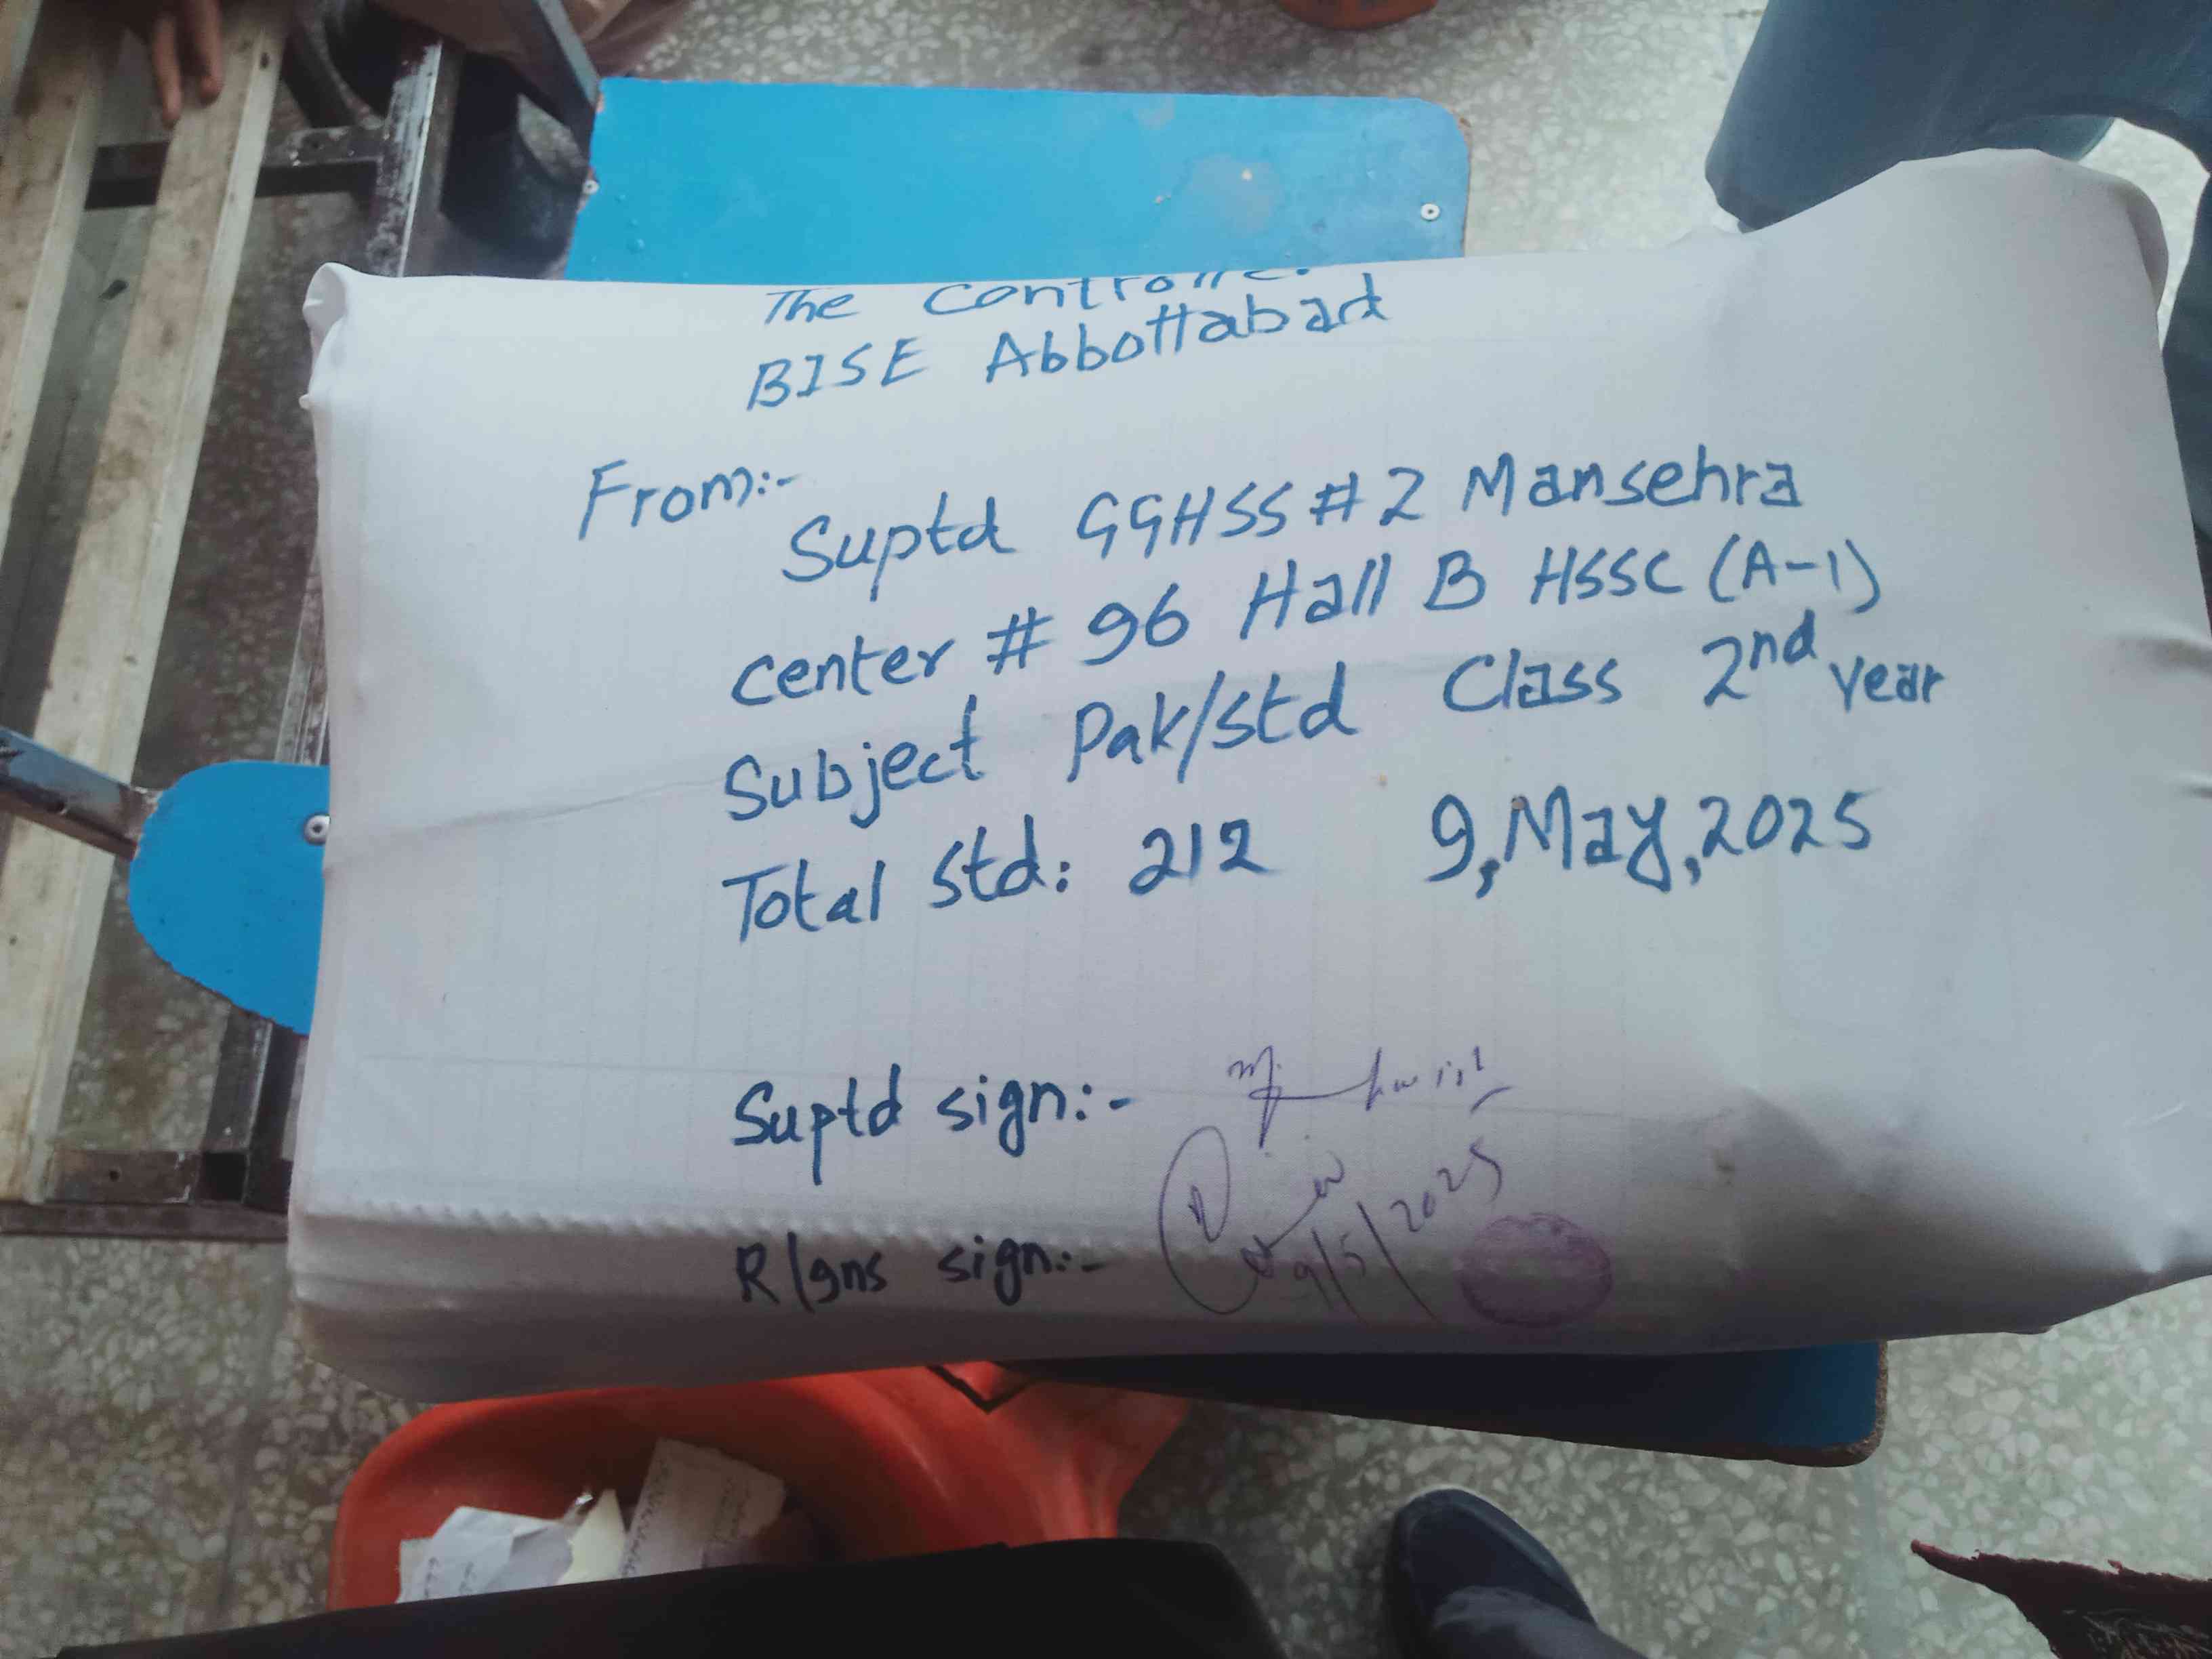 The Controller
BISE Abbottabad
From:-
Suptd GGHSS #2 Mansehra
center # 96 Hall B HSSC (A-1)
Subject Pak/std Class 2nd year
Total std: 212 9,May,2025
Suptd sign:-
R/gns sign:-
9/5/2025